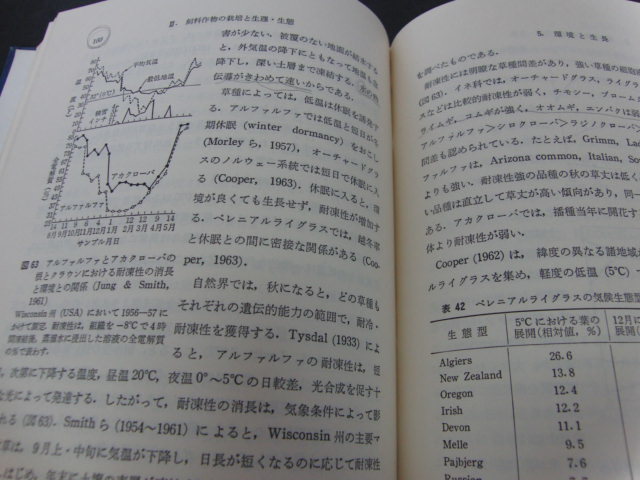 II. 飼料作物の栽培と生理・生態
平均気温
最低地温
積雪
インチ
アカクローバ
アルファルファ
サンプル月日
図63 アルファルファとアカクローバの
根とクラウンにおける耐凍性の消長
と環境との関係 (Jung & Smith,
1961)
Wisconsin 州 (USA) において 1956~57 に
かけて測定. 耐凍性は, 組織を -8°C で 4 時
間凍結後, 蒸溜水に浸出した溶液の全電解質
の%で表わす.
害が少ない. 被覆のない地面が結氷する
と, 外気温の降下にともなって地温も
降下し, 深い土層まで凍結する.
伝導がきわめて速いからである.
草種によっては, 低温は休眠を誘発す
る. アルファルファでは低温と短日が冬
期休眠 (winter dormancy) をおこし
(Morley ら, 1957), オーチャードグラ
スのノルウェー系統では短日で休眠に入
る (Cooper, 1963). 休眠に入ると, 環
境が良くても生長せず, 耐凍性が増加す
る. ペレニアルライグラスでは, 越冬率
と休眠との間に密接な関係がある (Coo-
per, 1963).
自然界では, 秋になると, どの草種も
それぞれの遺伝的能力の範囲で, 耐冷・
耐凍性を獲得する. Tysdal (1933) によ
ると, アルファルファの耐凍性は, 短
, 次第に下降する温度, 昼温 20°C, 夜温 0°~5°C の日較差, 光合成を促す十
な光によって発達する. したがって, 耐凍性の消長は, 気象条件によって影
れる (図63). Smith ら (1954~1961) によると, Wisconsin 州の主要マ
草は, 9月上・中旬に気温が下降し, 日長が短くなるのに応じて耐凍性
5. 環境と生長
を調べたものである.
耐凍性には明瞭な草種間差があり, 強い草種の磁
(図63). イネ科では, オーチャードグラス, ライグ
スなどは比較的耐凍性が弱く, チモシー, ブロー
ライムギ, コムギが強く, オオムギ, エンバクは弱
アルファルファ>シロクローバ>ラジノクローバ
間差も認められている. たとえば, Grimm, Lad
ファルファは, Arizona common, Italian, Sou
よりも強い. 耐凍性強の品種の秋の草丈は低く
い品種は直立して草丈が高い傾向があり, 同一
る. アカクローバでは, 播種当年に開花す
体より耐凍性が弱い.
Cooper (1962) は, 緯度の異なる諸地域か
ルライグラスを集め, 軽度の低温 (5°C)
表 42 ペレニアルライグラスの気候生態型
生態型 5°Cにおける葉の 12月に
展開(相対値, %) 展開
Algiers 26.6
New Zealand 13.8
Oregon 12.4
Irish 12.2
Devon 11.1
Melle 9.5
Pajbjerg 7.6
Russian